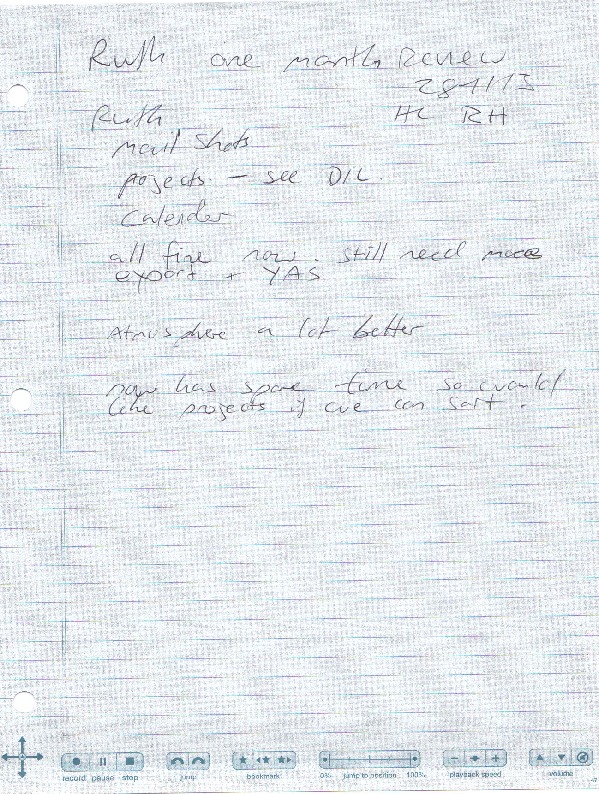 Ruth one month Review
28/1/13
HC RH
Ruth
mail shots
projects - see DIL.
Calender
all fine now. still need more
export + YAS
Atmosphere a lot better
now has spare time so would
like projects if we can sort.
record pause stop jump bookmark 0% jump to position 100% playback speed volume